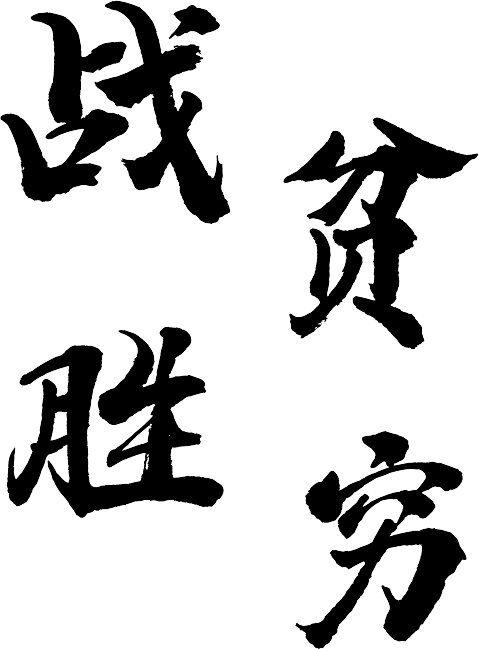 战胜
贫穷